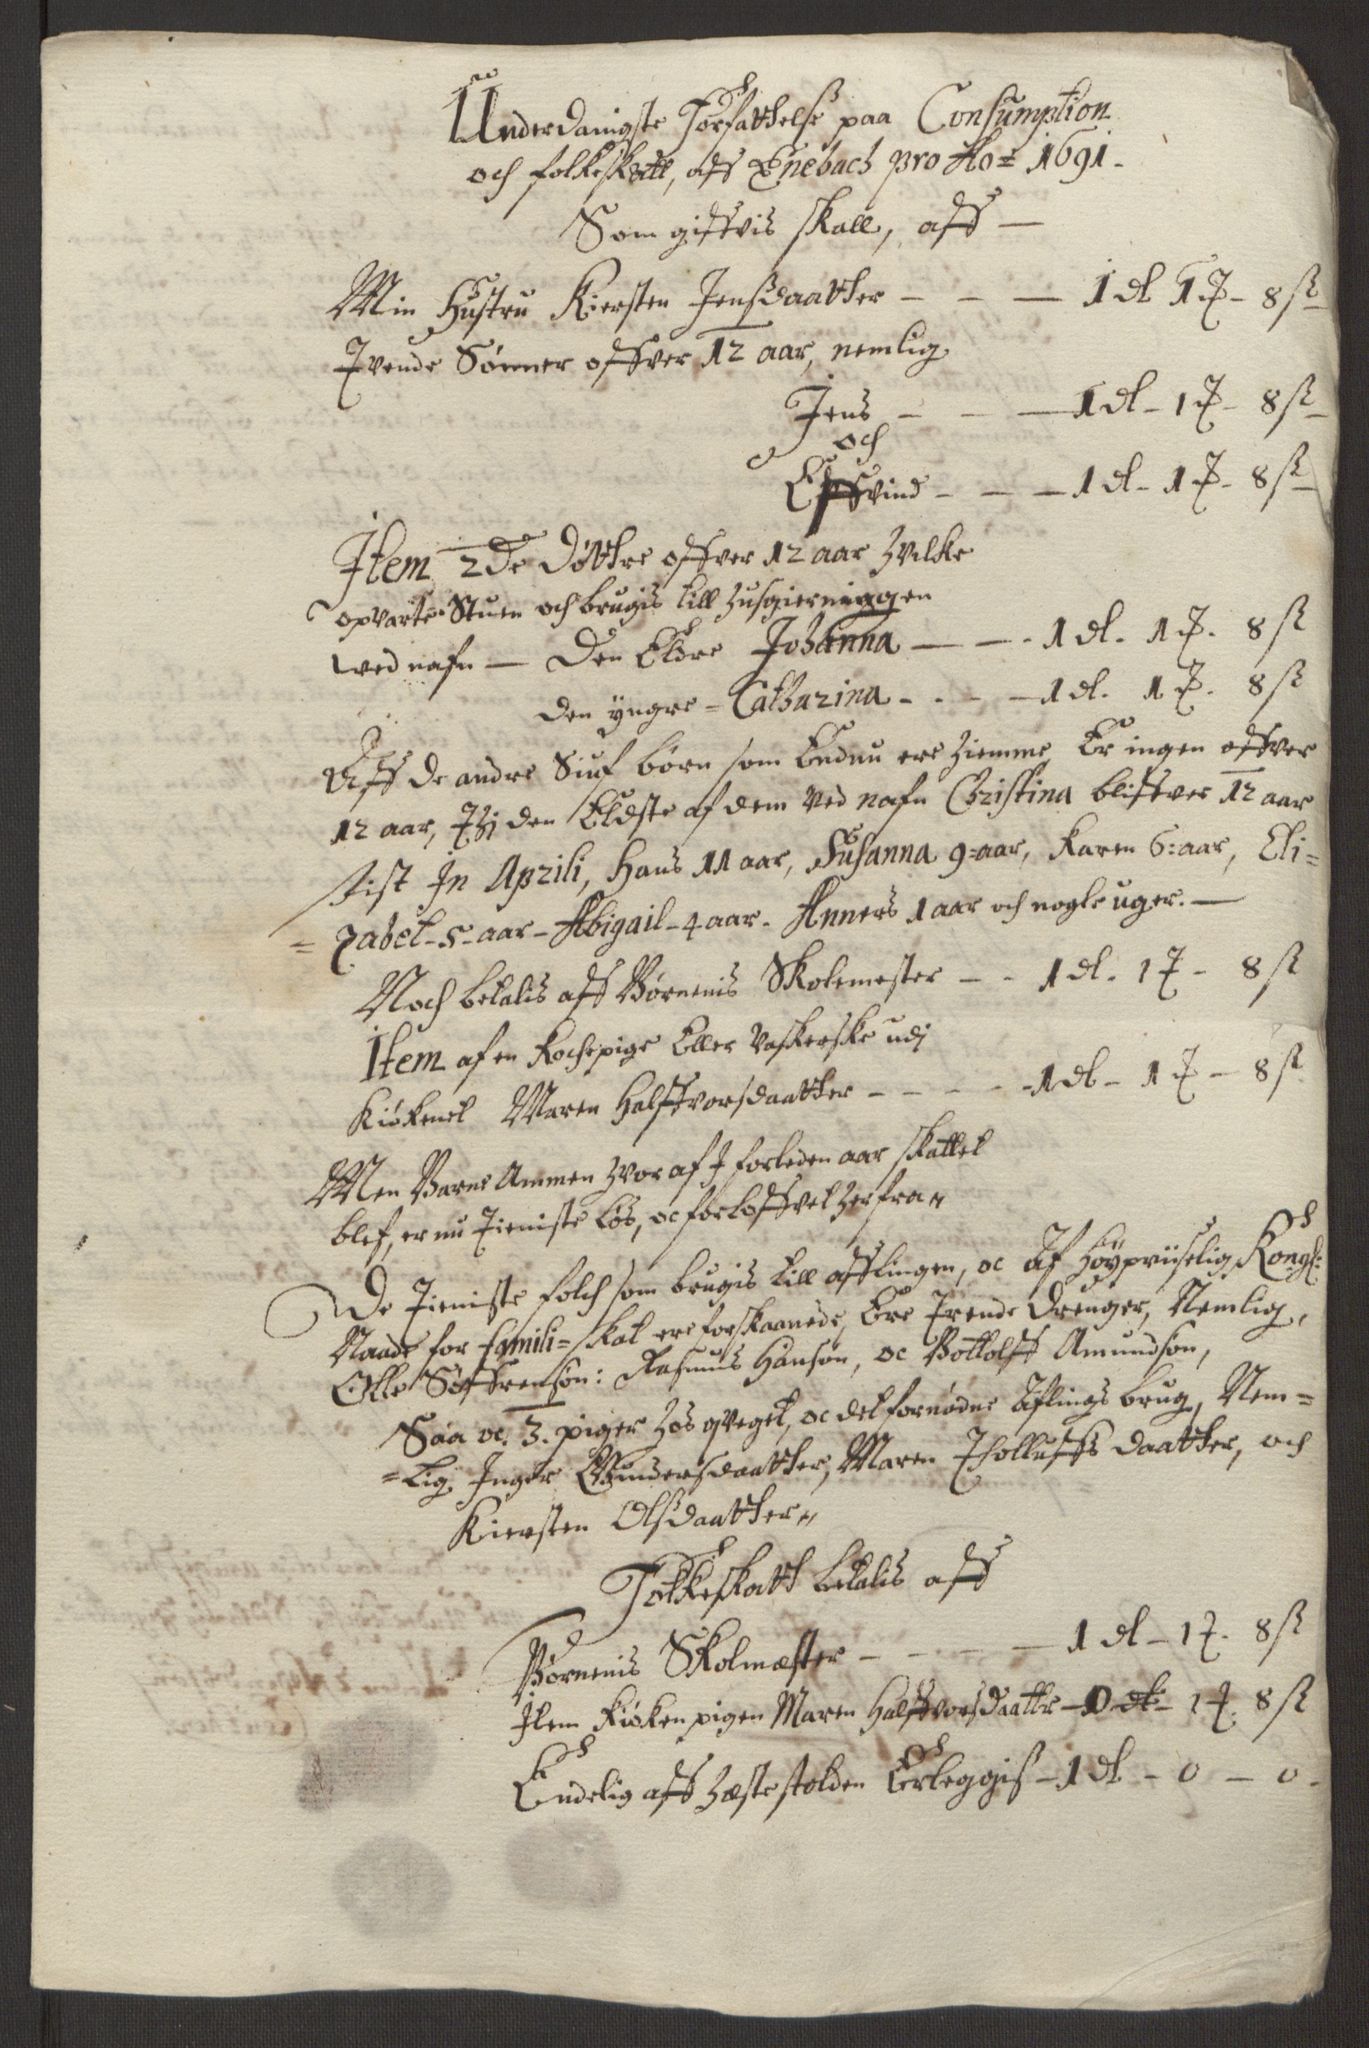 Underdanigste Forfattelse paa Consumption
och folkeskatt, aff Enebach pro Ao= 1691-
Som giffvis skall, aff —
Min Hustru Kiersten Jenssdaatter - - — 1 dl 1 ₮ - 8 ß
Tvende Sønner offver 12 aar, nemlig
Jens - - — 1 dl - 1 ₮ - 8 ß
och
Effvind - - — 1 dl - 1 ₮ - 8 ß
Item 2de Døttre offver 12 aar hvilke
opvarte Stuen och brugis till husgierninggen
ved nafn — Den Eldre Johanna — - 1 dl. 1 ₮. 8 ß
den yngre = Catharina - . - — 1 dl. 1 ₮. 8 ß
Aff de andre Siuf børn som Endnu ere hiemme, Er ingen offver
12 aar, Thj den Eldste af dem ved nafn Christina bliffver 12 aar
sist In Aprili, Hans 11 aar, Susanna 9=aar, Karen 6:aar, Eli=
=zabet - 5 - aar - Abigail - 4 aar. Anners 1 aar och nogle uger. —
Noch betalis aff Børnenis Skolemester - - 1 dl. 1 ₮ - 8 ß
Item af en Kochepige Eller Vaskerske udj
Kiøkenet Maren Halffvorsdaatter - - - - 1 dl - 1 ₮ - 8 ß
Men Barne Ammen hvor af J forleden aar skattet
blef, er nu Tieniste løs, oc forloffvet herfra"
De Tieniste folch som brugis till afflingen, oc Af Høypriiselig Kongl:
Naade for famili= skat ere forskaanede, Ere Trende Drenger, Nemlig,
Olle Søffrensøn: Rasmus Hansøn, oc Bottolff Amundsøn,
Saa oc. 3. piger hos qveget, oc det fornødne Aflings brug, Nem=
=lig Inger Gundersdaatter, Maren Tholluffs daatter, och
Kiersten Olssdaatter"
Folkeskatt betalis aff
Børnenis Skolmester - - - - — 1 dl - 1 ₮. 8 ß
Item Kiøkenpigen Maren Halffvorsdaatter - 0 dl - 1 ₮. 8 ß
Endelig aff Hæste stolden Erleggiss - 1 dl - 0 - 0 -